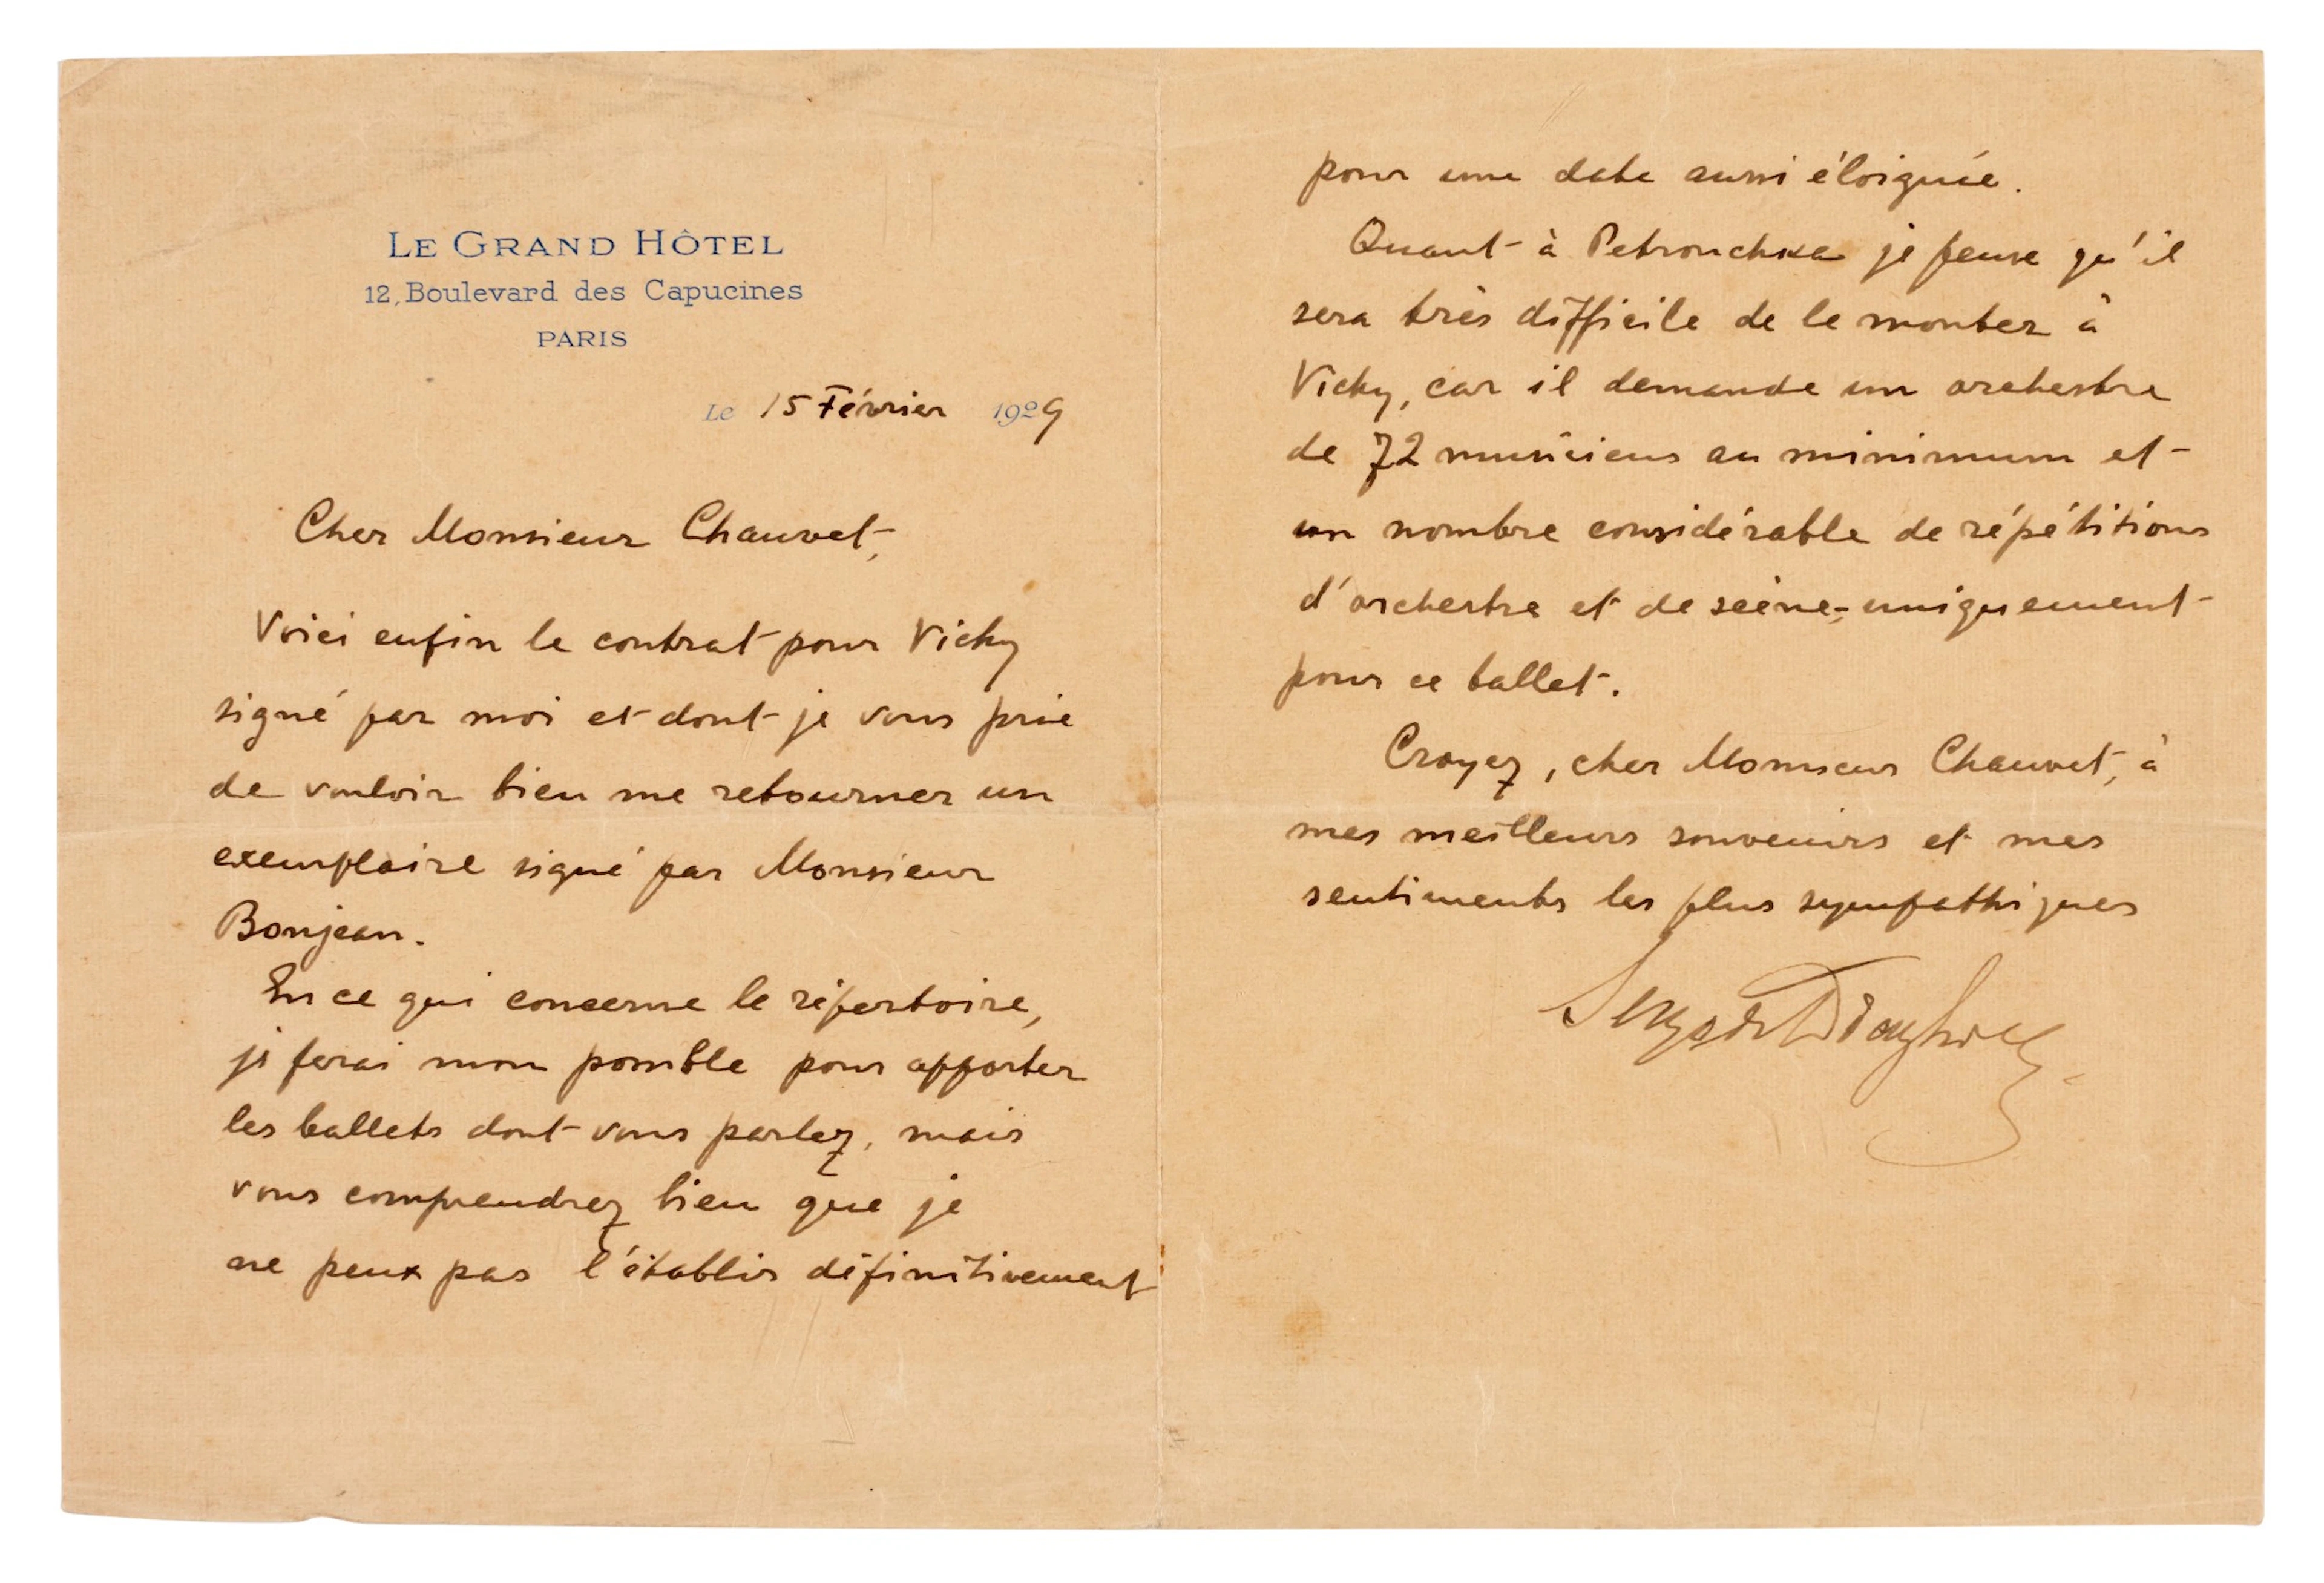 LE GRAND HÔTEL
12, Boulevard des Capucines
PARIS
Le 15 Février 1929
Cher Monsieur Chauvet,
Voici enfin le contrat pour Vichy
signé par moi et dont je vous prie
de vouloir bien me retourner un
exemplaire signé par Monsieur
Bonjean.
En ce qui concerne le répertoire,
je ferai mon possible pour apporter
les ballets dont vous parlez, mais
vous comprendrez bien que je
ne peux pas l'établir définitivement
pour une date aussi éloignée.
Quant à Petrouchka je pense qu'il
sera très difficile de le monter à
Vichy, car il demande un orchestre
de 72 musiciens au minimum et
un nombre considérable de répétitions
d'orchestre et de scène, uniquement
pour ce ballet.
Croyez, cher Monsieur Chauvet, à
mes meilleurs souvenirs et mes
sentiments les plus sympathiques
Serge de Diaghilew